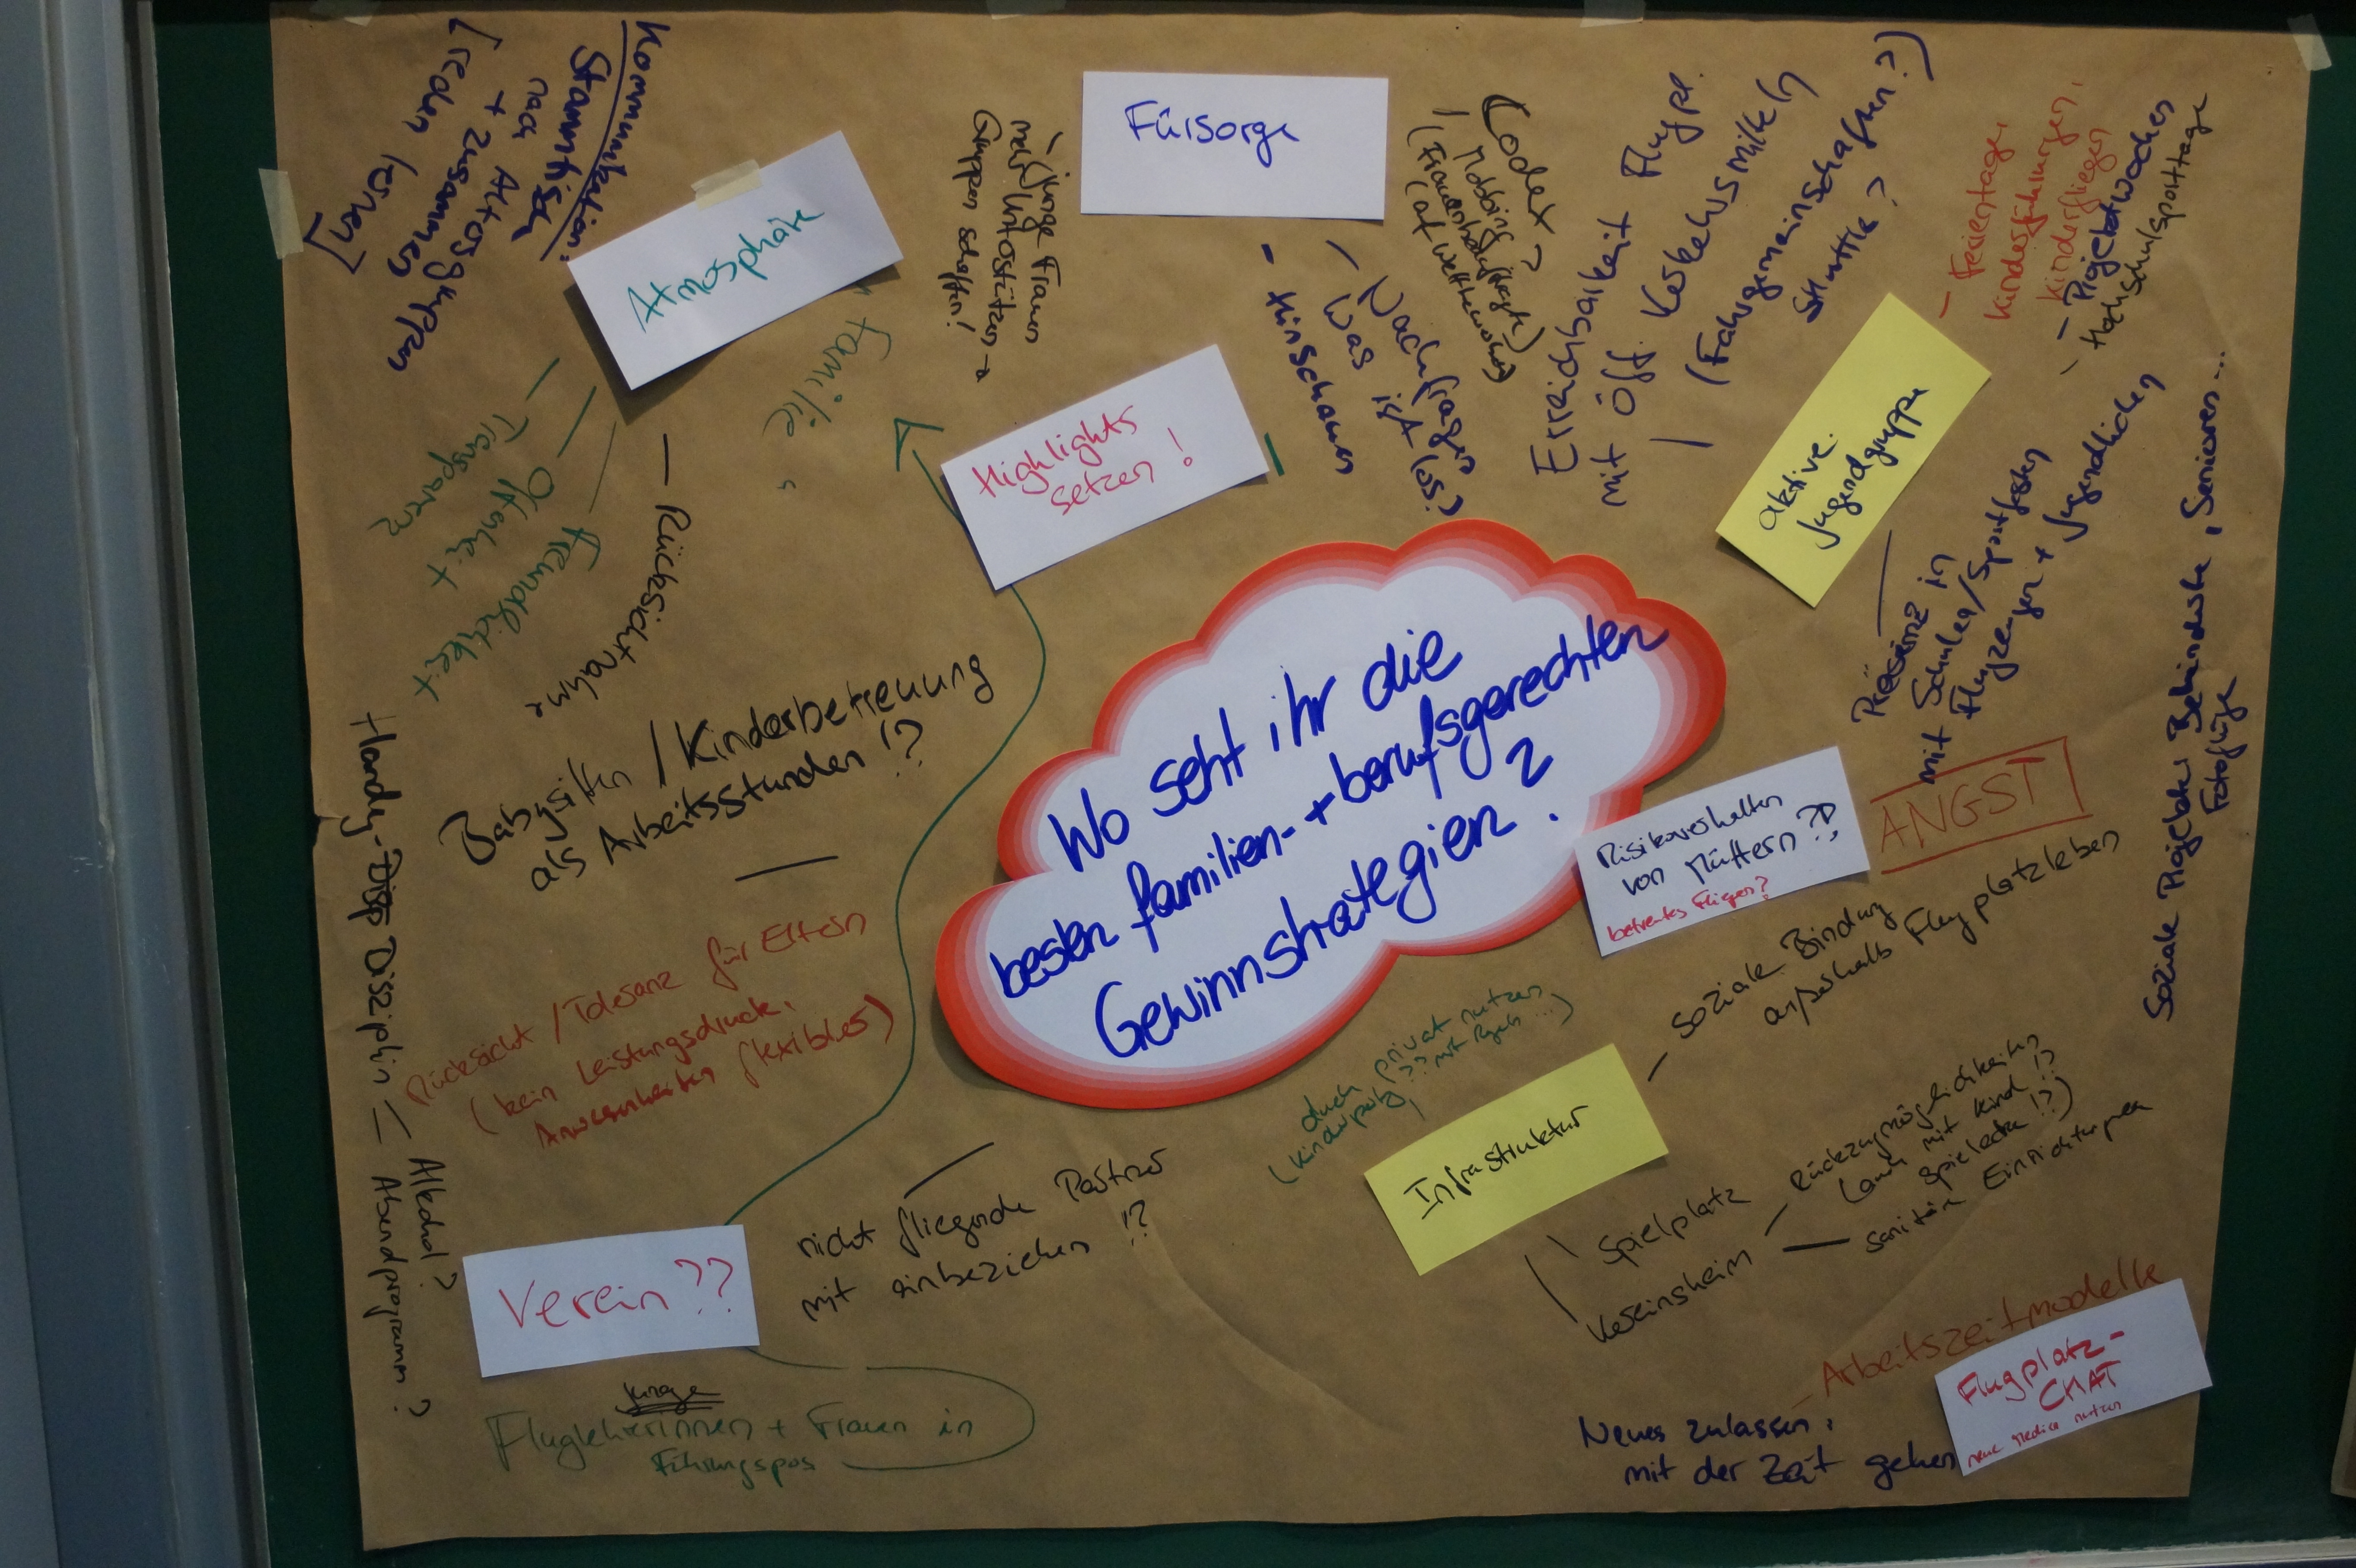 Kommunikation:
Stammtisch
nach Altersgruppen
+ zusammen
[reden lernen]
Atmosphäre
"Familie"
- Transparenz
- Offenheit
- Freundlichkeit
- Rücksichtnahme
- (junge) Frauen
mehr unterstützen →
Gruppen schaffen!
Fürsorge
- Hinschauen
- Nachfragen
- Was ist los?
Codex?
/ Mobbing
(Frauenbeauftragte)
(auf Wettbewerben)
Erreichbarkeit Flugpl.
mit öff. Verkehrsmitteln
/ (Fahrgemeinschaften?)
Shuttle?
Highlights
setzen!
aktive
Jugendgruppe
- Ferientage,
Kinderführungen,
Kinderfliegen
- Projektwochen
- Hochschulsporttage
Präsenz in
Schulen/Sportfesten
mit Flugzeugen + Jugendlichen
Soziale Projekte: Behinderte, Senioren...
Fotoflüge
Wo seht ihr die
besten familien- + berufsgerechten
Gewinnstrategien?
Risikoverhalten
von Müttern??
betreutes Fliegen?
ANGST
- soziale Bindung
außerhalb Flugplatzleben
Babysitten / Kinderbetreuung
als Arbeitsstunden!?
Rücksicht / Toleranz für Eltern
(kein Leistungsdruck,
Anwesenheiten flexibler)
Handy-Disziplin
- Alkohol?
- Abendprogramm?
Verein??
nicht fliegende Partner
mit einbeziehen!?
junge
Fluglehrerinnen + Frauen in
Führungspos
Infrastruktur
auch privat nutzen
(Kindergeb, ?? mit Regeln...)
\ Spielplatz
\ Vereinsheim
- Rückzugmöglichkeiten
(auch mit Kind!?
Spielecke!?)
- sanitäre Einrichtungen
- Arbeitszeitmodelle
Flugplatz-
CHAT
neue Medien nutzen
Neues zulassen,
mit der Zeit gehen